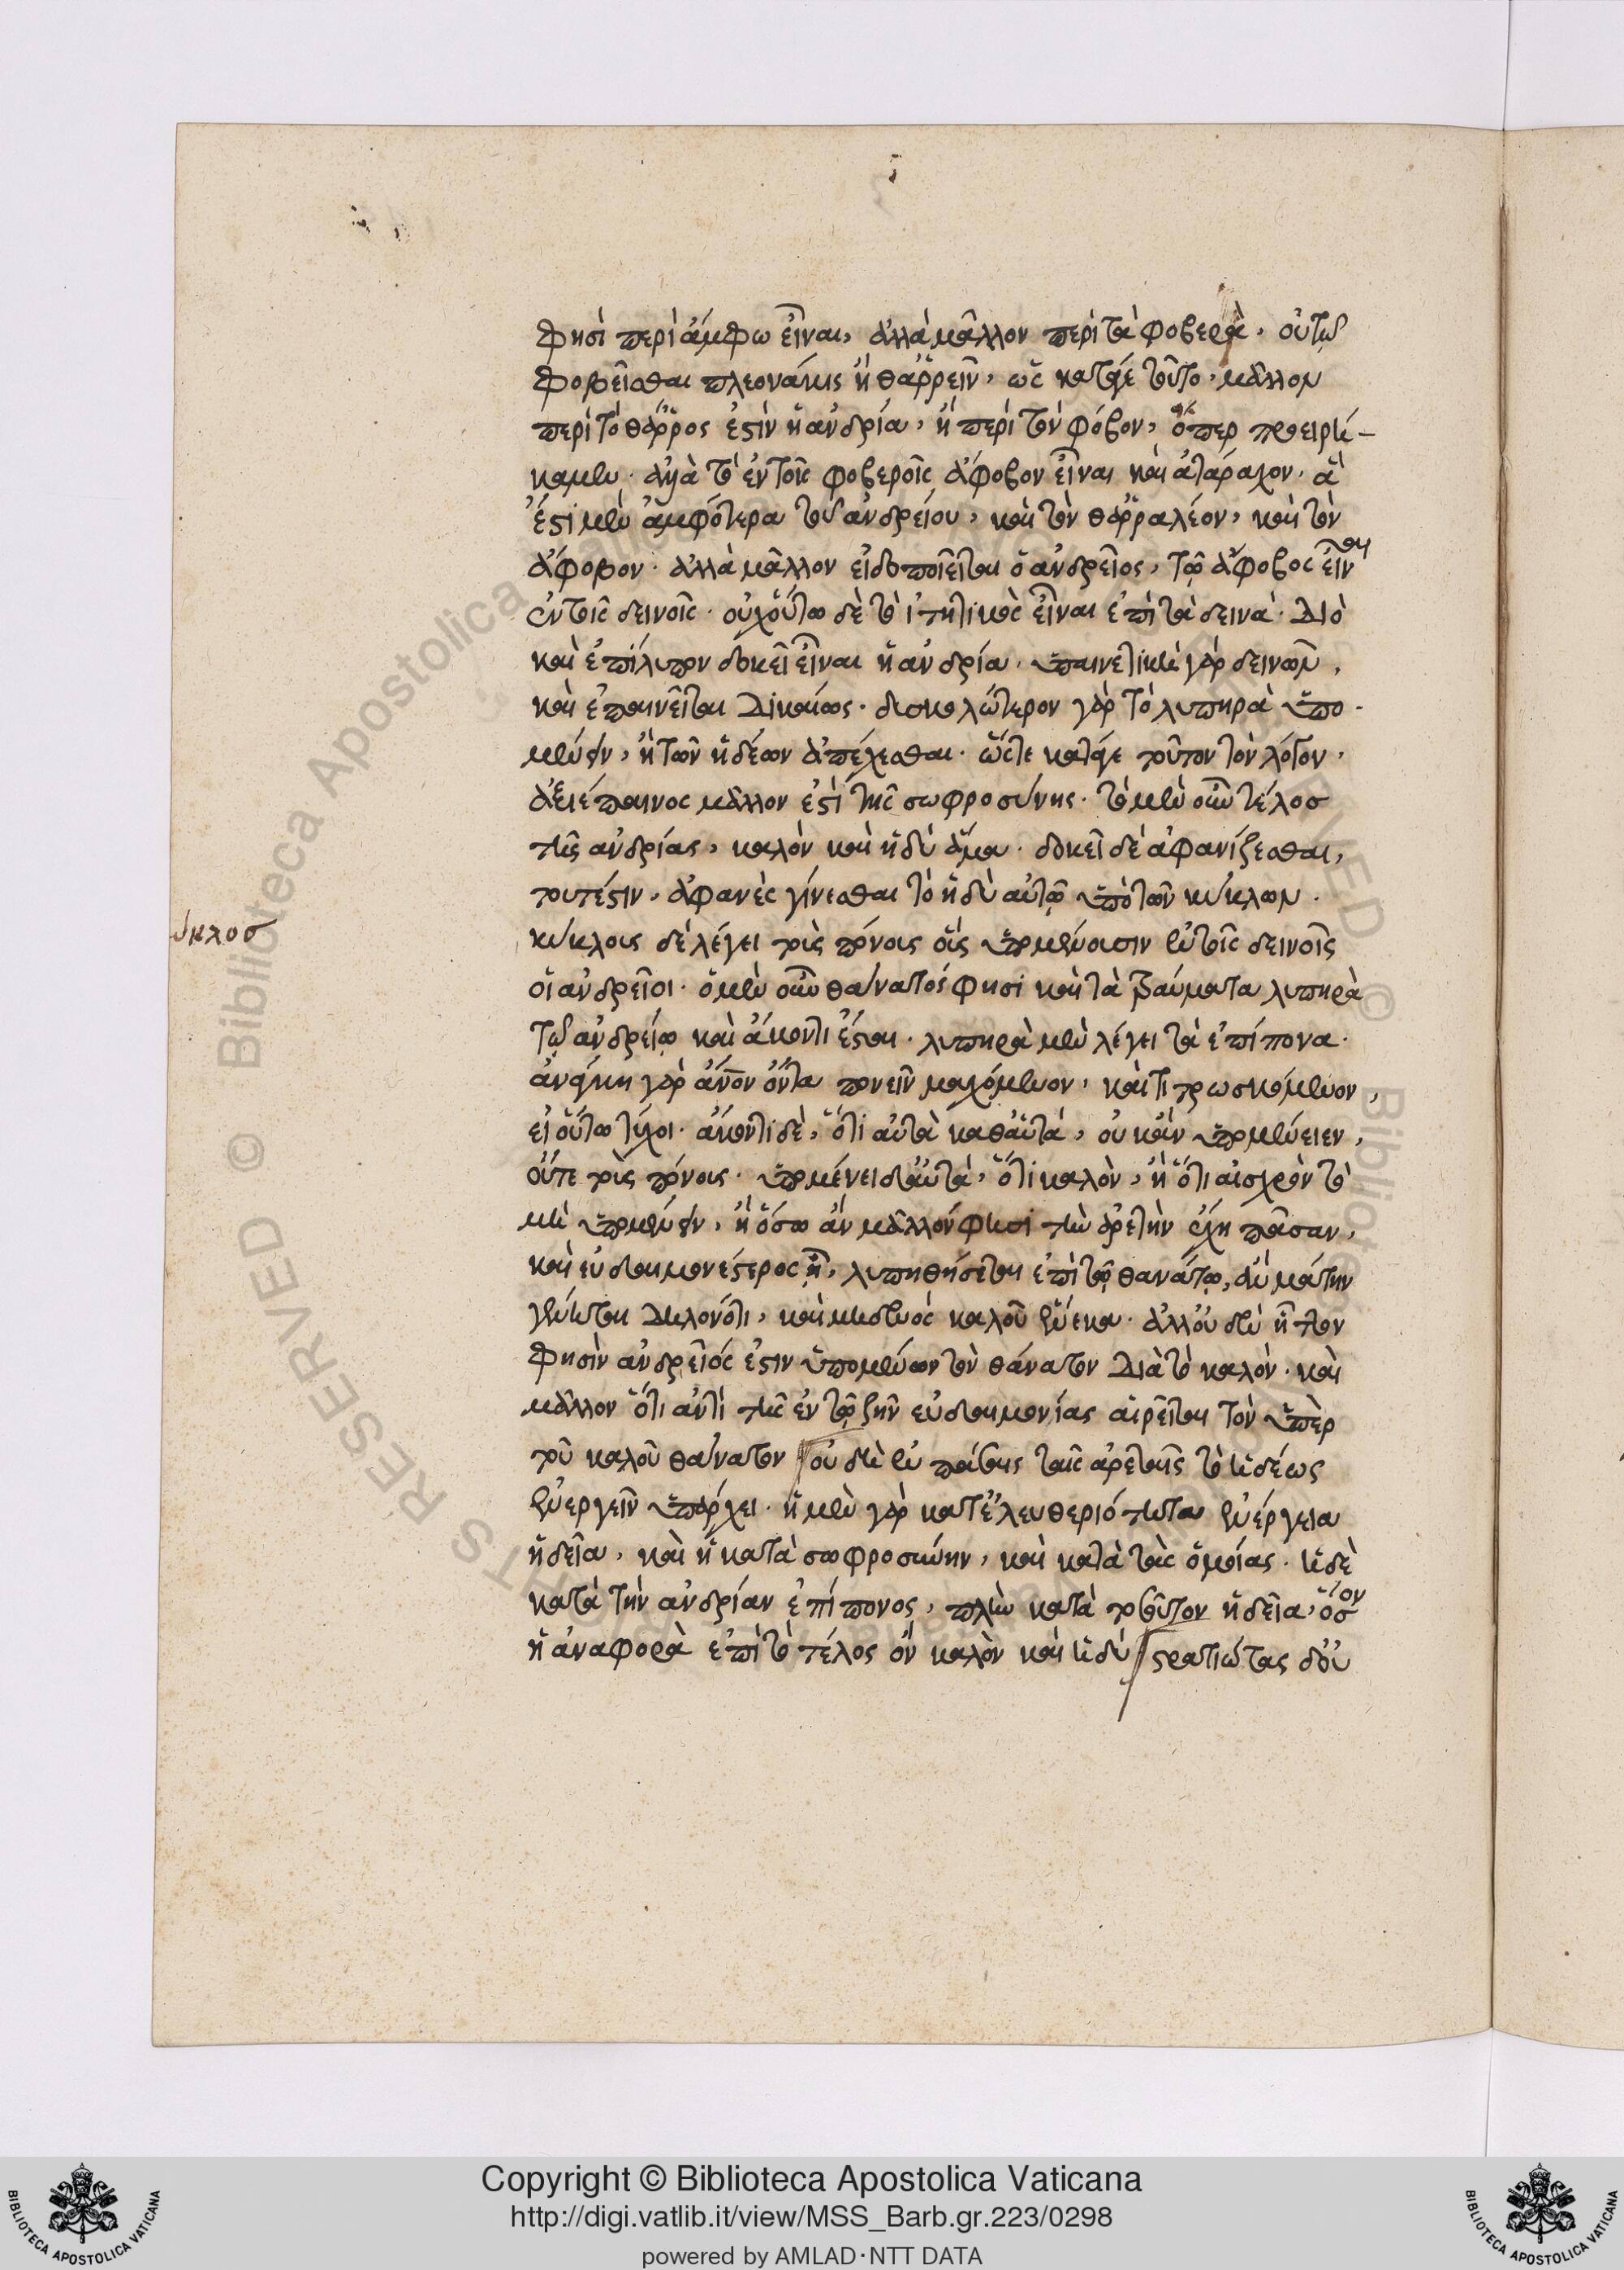 φησὶ περὶ ἄμφω εἶναι, ἀλλὰ μᾶλλον περὶ τὰ φοβερὰ. οὐ τῷ
φοβεῖσθαι πλεονάκις ἢ θαῤῥεῖν, ὡς κατά γε τοῦτο, μᾶλλον
περὶ τὸ θάῤῥος ἐστὶν ἡ ἀνδρία, ἢ περὶ τὸν φόβον, ὅπερ προειρή-
καμεν. ἀλλὰ τὸ ἐν τοῖς φοβεροῖς ἄφοβον εἶναι καὶ ἀτάραχον. ἃ
ἔστι μὲν ἀμφότερα τοῦ ἀνδρείου, καὶ τὸν θαῤῥαλέον, καὶ τὸν
ἄφοβον. ἀλλὰ μᾶλλον εἰδοποιεῖται ὁ ἀνδρεῖος, τῷ ἄφοβος εἶναι
ἐν τοῖς δεινοῖς. οὐχ οὕτω δὲ τὸ ἰτητικὸς εἶναι ἐπὶ τὰ δεινά. Διὸ
καὶ ἐπίλυπον δοκεῖ εἶναι ἡ ἀνδρία. ὑπομενετικὴ γὰρ δεινῶν,
καὶ ἐπαινεῖται Δικαίως. δυσκολώτερον γὰρ τὸ λυπηρὰ ὑπο-
μένειν, ἢ τῶν ἡδέων ἀπέχεσθαι. ὥστε κατά γε τοῦτον τὸν λόγον,
ἀξιέπαινος μᾶλλον ἐστὶ τῆς σωφροσύνης. τὸ μὲν οὖν τέλος
τῆς ἀνδρίας, καλὸν καὶ ἡδὺ ἅμα. δοκεῖ δὲ ἀφανίζεσθαι,
τουτέστιν, ἀφανὲς γίνεσθαι τὸ ἡδὺ αὐτῷ ὑπὸ τῶν κύκλων.
ύκλος
κύκλους δὲ λέγει τοὺς πόνους οὓς ὑπομένουσιν ἐν τοῖς δεινοῖς
οἱ ἀνδρεῖοι. ὁ μὲν οὖν θάνατός φησι καὶ τὰ τραύματα λυπηρὰ
τῷ ἀνδρείῳ καὶ ἄκοντι ἔσται. λυπηρὰ μὲν λέγει τὰ ἐπίπονα.
ἀνάγκη γὰρ ἄνον ὄντα πονεῖν μαχόμενον, καὶ τιτρωσκόμενον,
εἰ οὕτω τύχοι. ἄκοντι δὲ, ὅτι αὐτὰ καθ' αὑτά, οὐκ ἂν ὑπομένειεν,
οὔτε τοὺς πόνους. ὑπομένει δ' αὐτὰ, ὅτι καλὸν, ἢ ὅτι αἰσχρὸν τὸ
μὴ ὑπομένειν, ἢ ὅσῳ ἂν μᾶλλόν φησι τὴν ἀρετὴν ἔχῃ πᾶσαν,
καὶ εὐδαιμονέστερος ᾖ, λυπηθήσεται ἐπὶ τῷ θανάτῳ, ἂν μάτην
γένηται Δηλονότι, καὶ μηδενὸς καλοῦ ἕνεκα. ἀλλ' οὐδὲν ἧττον
φησὶν ἀνδρεῖός ἐστιν ὑπομένων τὸν θάνατον Διὰ τὸ καλὸν. καὶ
μᾶλλον ὅτι ἀντὶ τῆς ἐν τῷ ζῆν εὐδαιμονίας αἱρεῖται τὸν ὑπὲρ
τοῦ καλοῦ θάνατον οὐ δὴ ἐν πάσαις ταῖς ἀρεταῖς τὸ ἡδέως
ἐνεργεῖν ὑπάρχει. ἡ μὲν γὰρ κατ' ἐλευθεριότητα ἐνέργεια
ἡδεῖα, καὶ ἡ κατὰ σωφροσύνην, καὶ κατὰ τὰς ὁμοίας. ἡ δὲ
κατὰ τὴν ἀνδρίαν ἐπίπονος, πλὴν κατὰ τοῦτον ἡδεῖα, ὅσον
ἡ ἀναφορὰ ἐπὶ τὸ τέλος ὂν καλὸν καὶ ἡδὺ στρατιώτας δ' οὐ
Copyright © Biblioteca Apostolica Vaticana
http://digi.vatlib.it/view/MSS_Barb.gr.223/0298
powered by AMLAD·NTT DATA